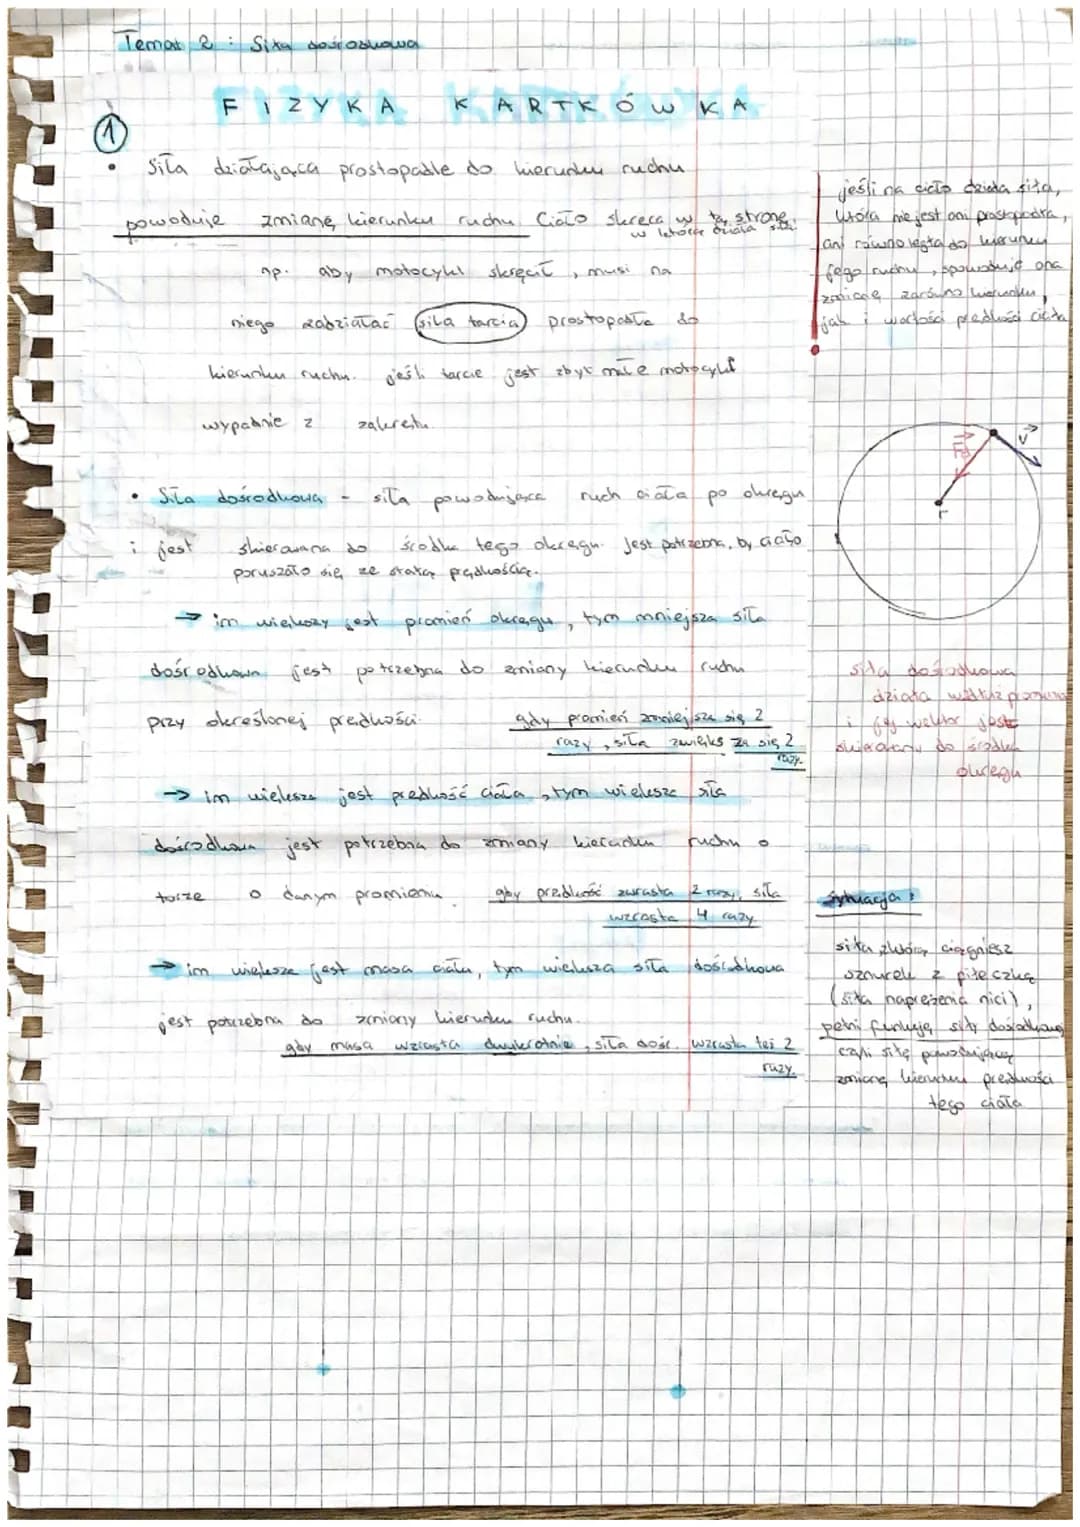 Temat 2 : Siła dośrodkowa
FIZYKA KARTKÓWKA
1
• Siła działająca prostopadle do kierunku ruchu
powoduje zmianę kierunku ruchu. Ciało skręca w tą stronę,
w którą działa siła
np. aby motocykl skręcił, musi na
niego zadziałać siła tarcia prostopadła do
kierunku ruchu. jeśli tarcie jest zbyt małe motocykl
wypadnie z zakrętu.
• Siła dośrodkowa - siła powodująca ruch ciała po okręgu
i jest skierowana do środka tego okręgu. Jest potrzebna, by ciało
poruszało się ze stałą prędkością.
→ im większy jest promień okręgu, tym mniejsza siła
dośrodkowa jest potrzebna do zmiany kierunku ruchu
przy określonej prędkości.
gdy promień zmniejsza się 2
razy, siła zwiększa się 2
razy.
→ im większa jest prędkość ciała, tym większa siła
dośrodkowa jest potrzebna do zmiany kierunku ruchu o
torze o danym promieniu
gdy prędkość wzrasta 2 razy, siła
wzrasta 4 razy
→ im większa jest masa ciała, tym większa siła dośrodkowa
jest potrzebna do zmiany kierunku ruchu.
gdy masa wzrasta dwukrotnie, siła dośr. wzrasta też 2
razy.
jeśli na ciało działa siła,
która nie jest ani prostopadła,
ani równoległa do kierunku
jego ruchu, spowoduje ona
zmianę zarówno kierunku,
jak i wartości prędkości ciała
Fd
v
r
siła dośrodkowa
działa wzdłuż promienia
i jej wektor jest
skierowany do środka
okręgu
Sytuacja:
siła, którą ciągniesz
sznurek z piłeczką
(siła naprężenia nici),
pełni funkcję siły dośrodkowej
czyli siłę powodującą
zmianę kierunku prędkości
tego ciała